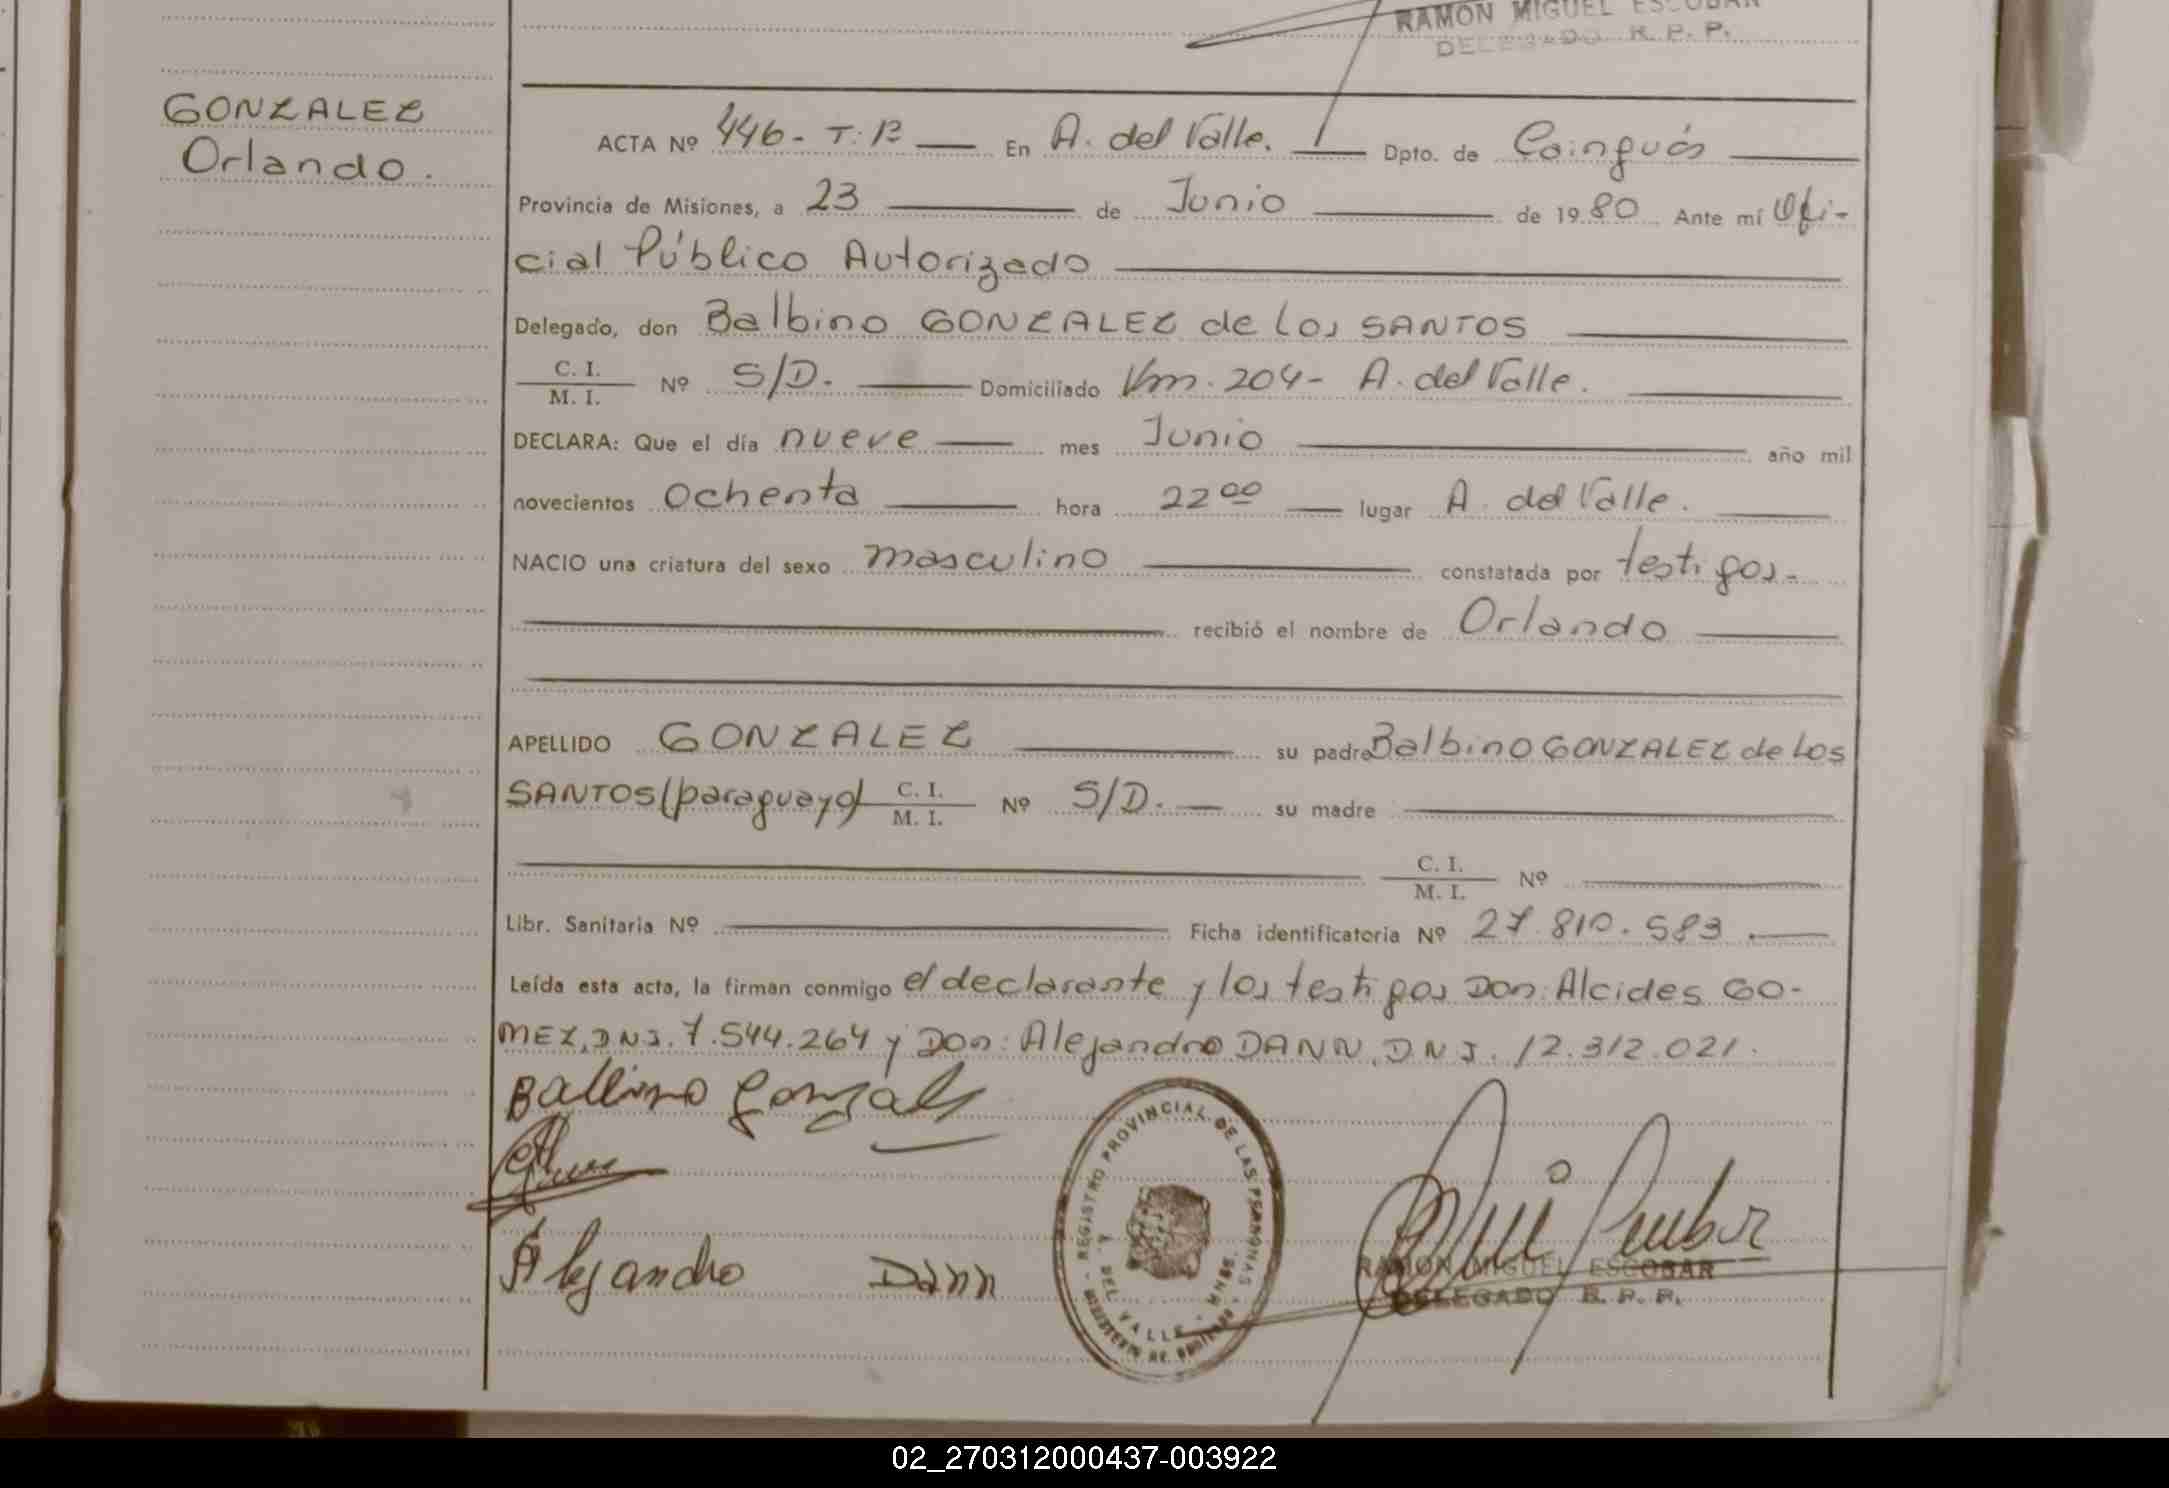 RAMON MIGUEL ESCOBAR
DELEGADO R. P. P.
GONZALEZ
Orlando.
ACTA Nº 446- T: B En A. del Valle. Dpto. de Cainguás
Provincia de Misiones, a 23 de Junio de 1980 Ante mí Ofi-
cial Público Autorizado
Delegado, don Balbino GONZALEZ de los SANTOS
C. I.
M. I. Nº S/D. Domiciliado Km. 204- A. del Valle.
DECLARA: Que el día nueve mes Junio año mil
novecientos ochenta hora 22 00 lugar A. del Valle.
NACIO una criatura del sexo masculino constatada por testigos.-
recibió el nombre de Orlando
APELLIDO GONZALEZ su padre Balbino GONZALEZ de los
SANTOS (paraguayo) C. I. M. I. Nº S/D. su madre
C. I.
M. I. Nº
Libr. Sanitaria Nº Ficha identificatoria Nº 27.810.583.
Leída esta acta, la firman conmigo el declarante y los testigos Don: Alcides GO-
MEZ, DNI. 7.544.264 y Don: Alejandro DANN, DNI. 12.312.021.
Balbino Gonzalez
Alejandro Dann
REGISTRO PROVINCIAL DE LAS PERSONAS
A. DEL VALLE - MNES.
MINISTERIO DE GOBIERNO
RAMON MIGUEL ESCOBAR
DELEGADO R. P. P.
02_270312000437-003922